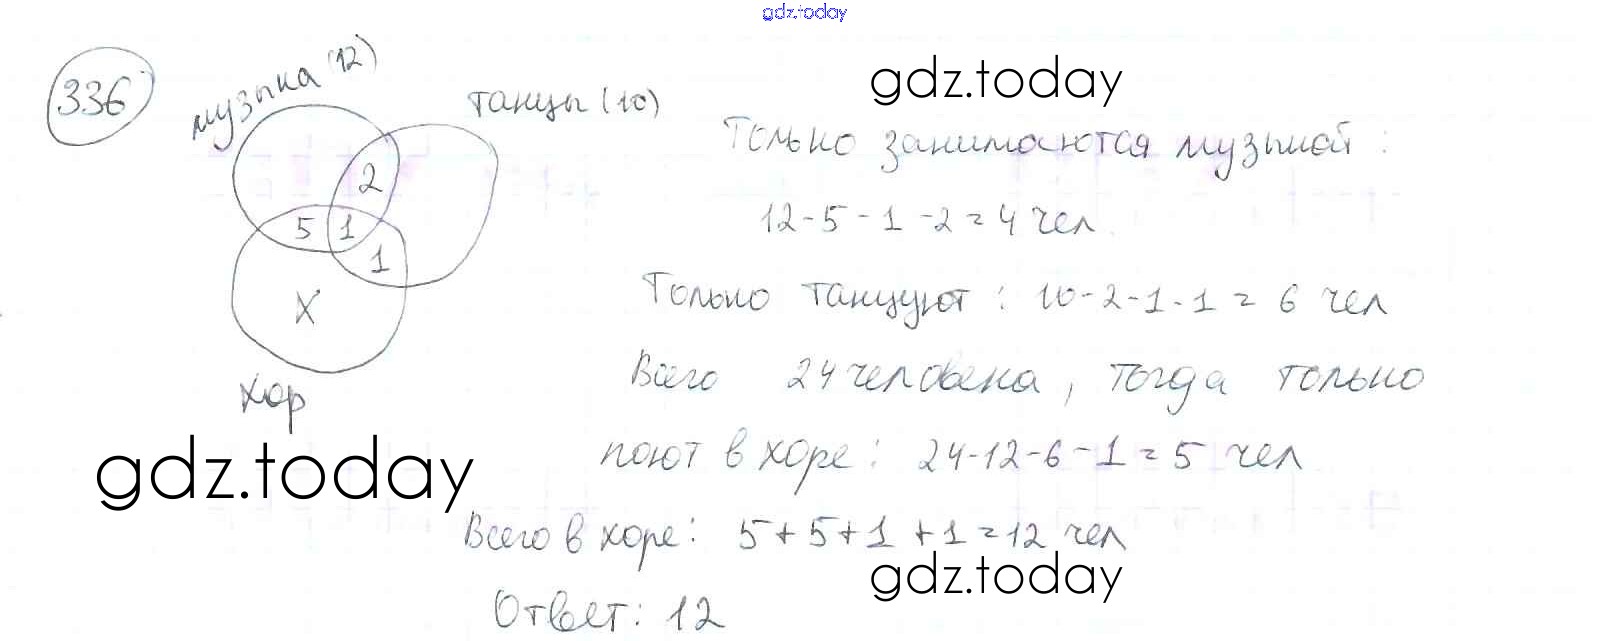 gdz.today
336
музыка (12)
танцы (10)
gdz.today
2
5 1
1
X
хор
Только занимаются музыкой :
12-5-1-2=4 чел.
Только танцуют : 10-2-1-1 = 6 чел
Всего 24 человека, тогда только
поют в хоре : 24-12-6-1=5 чел
gdz.today
Всего в хоре: 5+5+1+1=12 чел
gdz.today
Ответ: 12